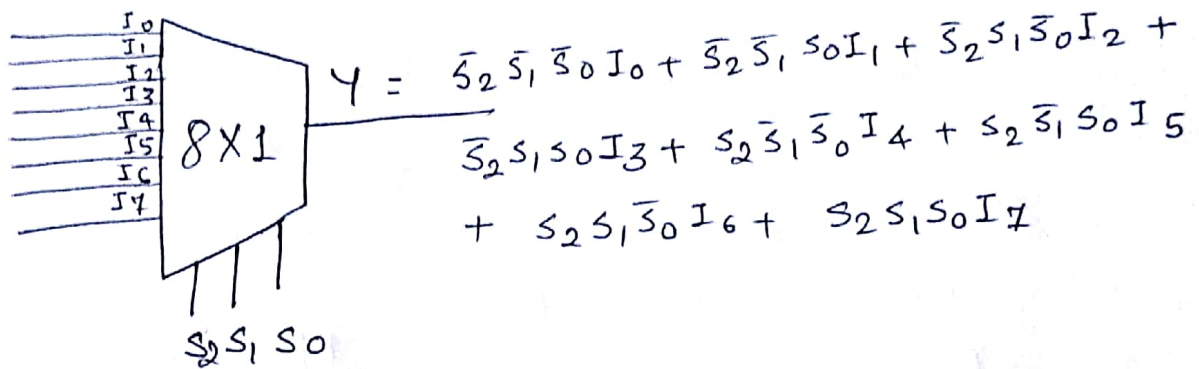 I0
I1
I2
I3
I4
I5
I6
I7
8X1
Y = S̄2 S̄1 S̄0 I0 + S̄2 S̄1 S0 I1 + S̄2 S1 S̄0 I2 +
S̄2 S1 S0 I3 + S2 S̄1 S̄0 I4 + S2 S̄1 S0 I5
+ S2 S1 S̄0 I6 + S2 S1 S0 I7
S2 S1 S0